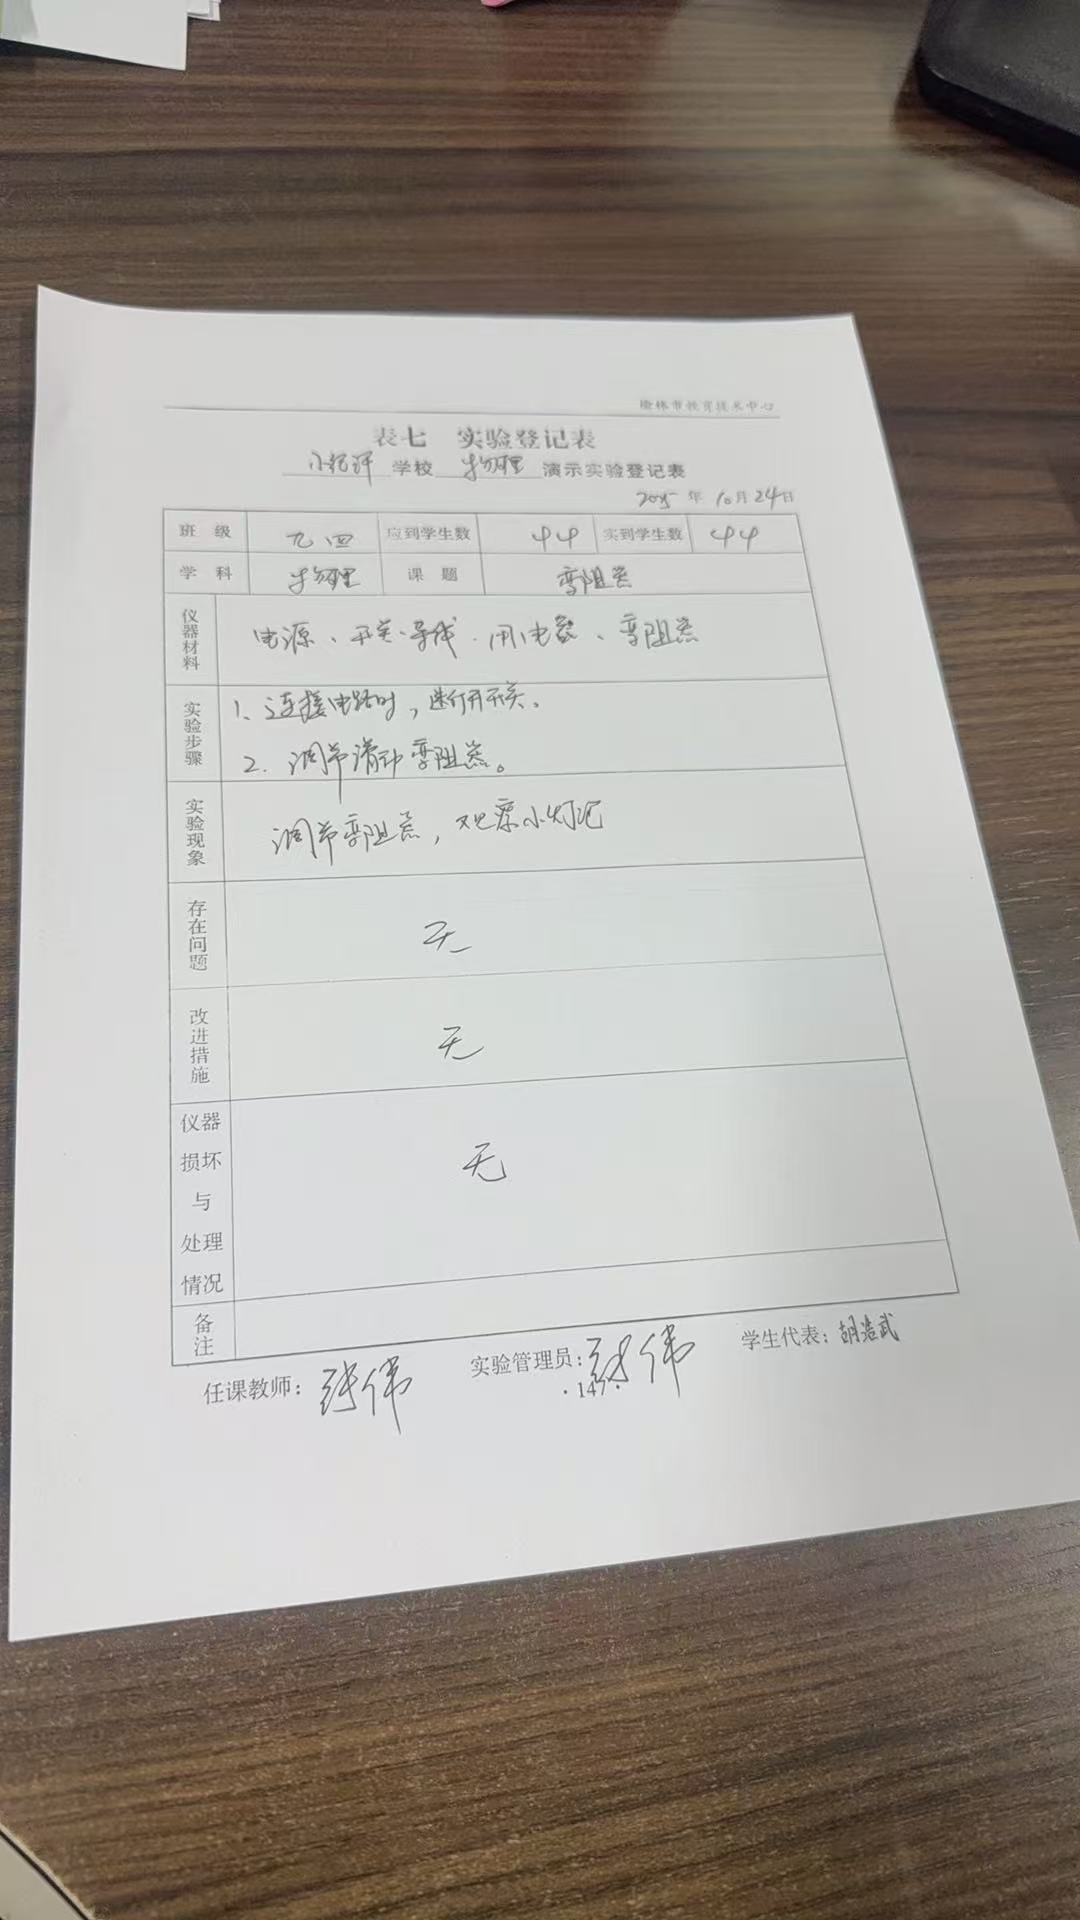 榆林市教育技术中心
表七 实验登记表
小纪汗 学校 物理 演示实验登记表
2025 年 10月 24日
班 级 九四 应到学生数 44 实到学生数 44
学 科 物理 课 题 变阻器
仪器材料 电源、开关、导线、用电器、变阻器
实验步骤 1、连接电路时，断开开关。
2. 调节滑动变阻器。
实验现象 调节变阻器，观察小灯泡
存在问题 无
改进措施 无
仪器损坏与处理情况 无
备注
任课教师：张伟 实验管理员：张伟 学生代表：胡浩武